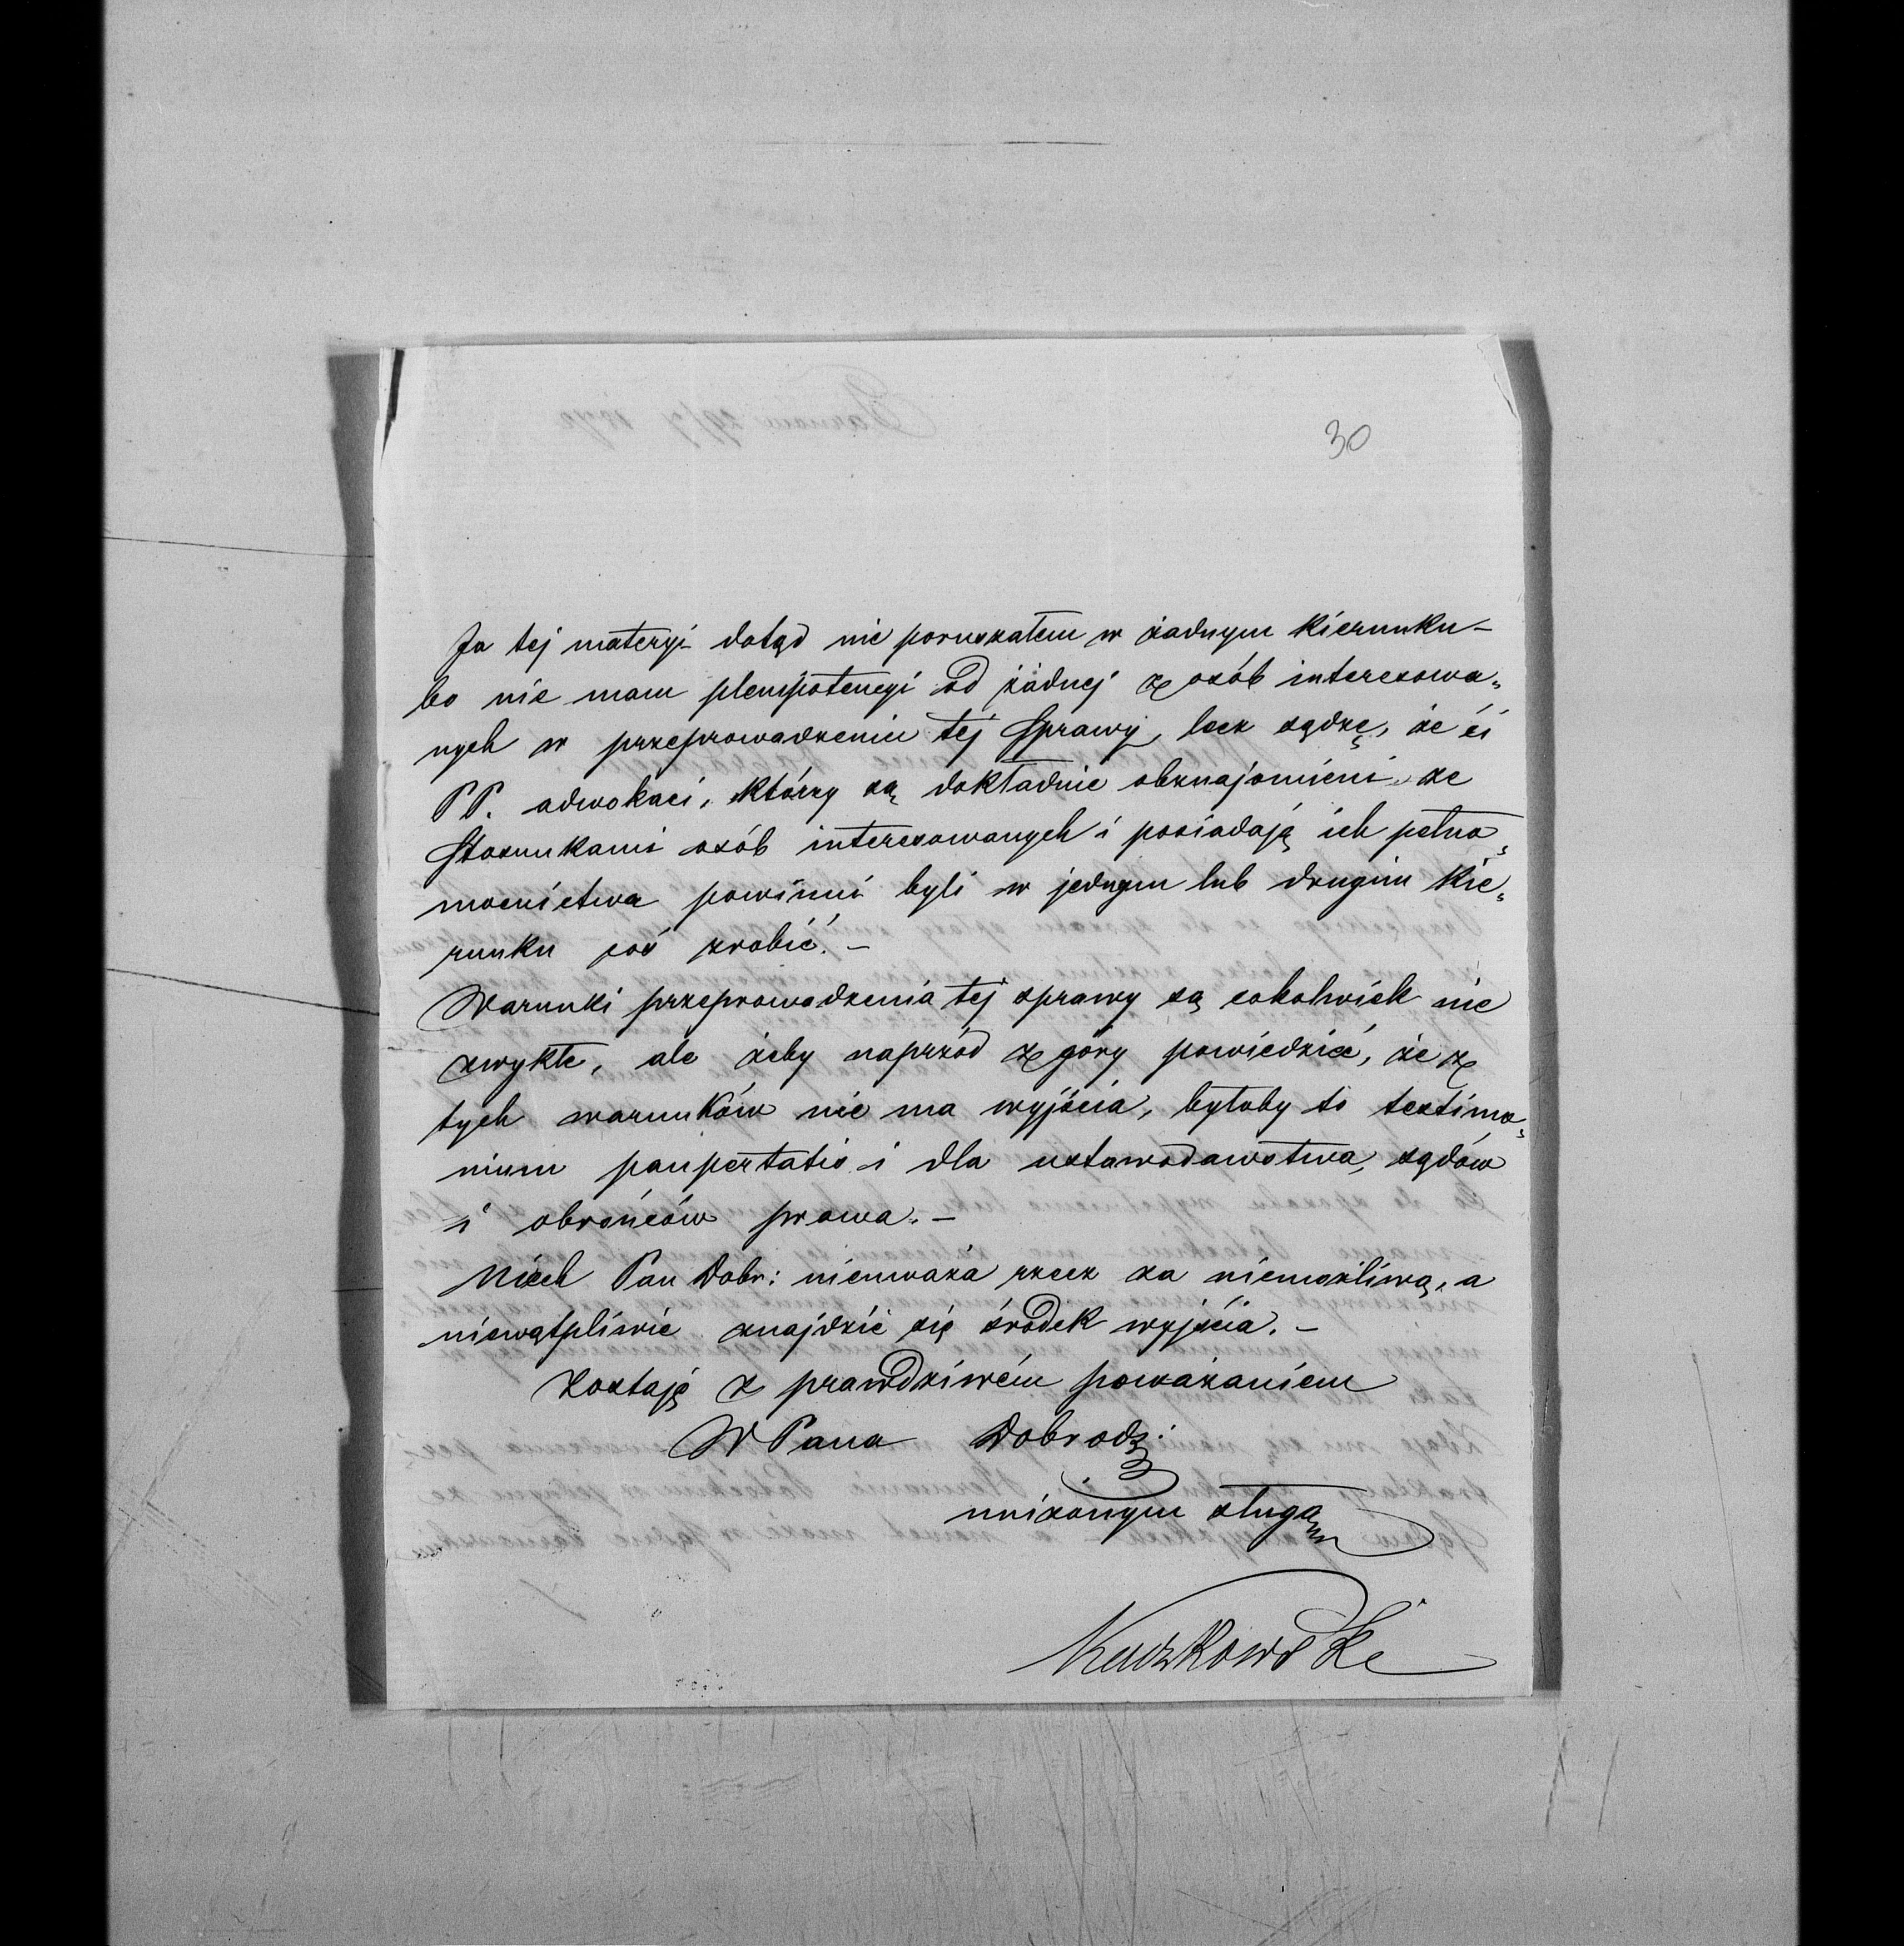 30
Ja tej materyi dotąd nie poruszałem w żadnym kierunku –
bo nie mam plenipotencyi od żadnej z osób interesowa„
nych w przeprowadzeniu tej sprawy, lecz sądzę, że ci
PP. adwokaci, którzy są dokładnie obznajomieni ze
stosunkami osób interesowanych i posiadają ich pełno„
mocnictwa powinni byli w jednym lub drugim kie„
runku coś zrobić. –
Warunki przeprowadzenia tej sprawy są cokolwiek nie
zwykłe, ale żeby naprzód z góry powiedzieć, że z
tych warunków nie ma wyjścia, byłoby to testimo„
nium paupertatis i dla ustawodawstwa, sądów
i obrońców prawa. –
Niech Pan Dobr: nieuważa rzecz za niemożliwą, a
niewątpliwie znajdzie się środek wyjścia. –
Zostaję z prawdziwém poważaniem
W Pana Dobrodz:
uniżonym sługą